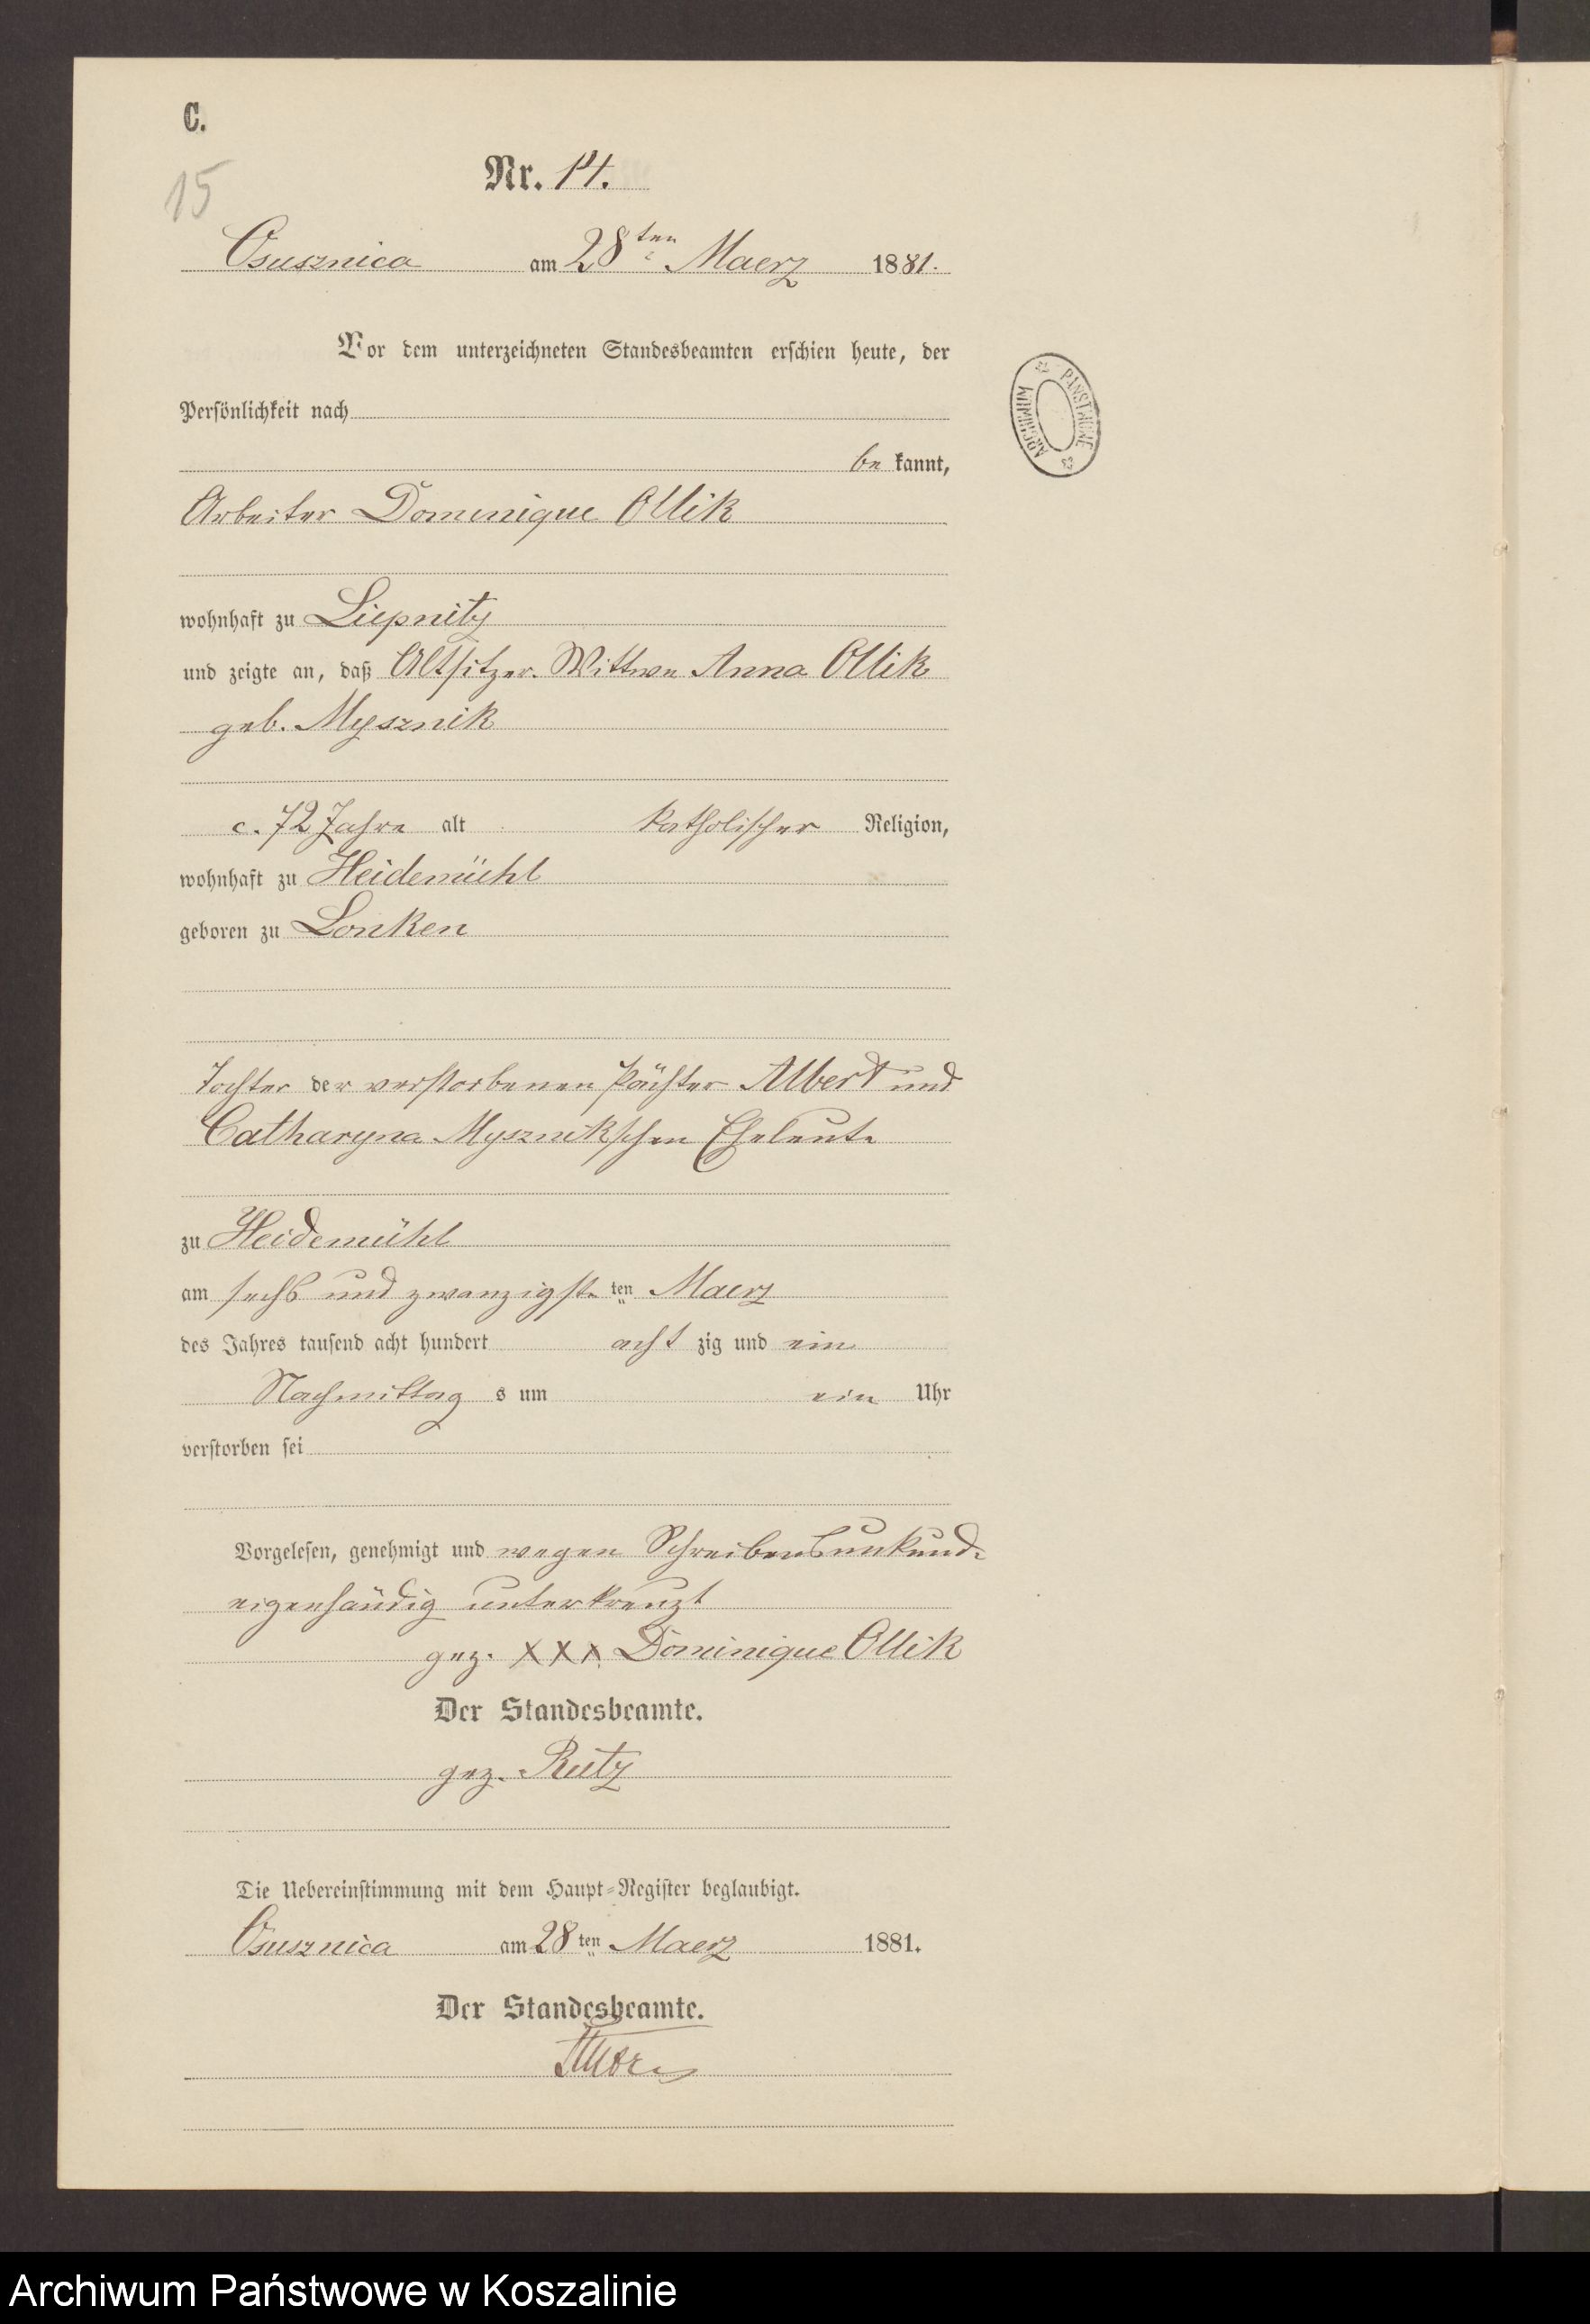 C.
15
Nr. 14.
Osusznica am 28ten Maerz 1881.
Vor dem unterzeichneten Standesbeamten erschien heute, der
Persönlichkeit nach
be kannt,
Arbeiter Domenique Ollik
wohnhaft zu Liepnitz
und zeigte an, daß Altsitzer-Wittwe Anna Ollik
geb. Mysznik
c. 72 Jahre alt katholischer Religion,
wohnhaft zu Heidemühl
geboren zu Lonken
Tochter der verstorbenen Pächter Albert und
Catharyna Mysznikschen Eheleute
zu Heidemühl
am sechs und zwanzigsten Maerz
des Jahres tausend acht hundert acht zig und ein
Nachmittag s um ein Uhr
verstorben sei
Vorgelesen, genehmigt und wegen Schreibensunkunde
eigenhändig unterkreuzt
gez. XXX Dominique Ollik
Der Standesbeamte.
gez. Rutz
Die Uebereinstimmung mit dem Haupt-Register beglaubigt.
Osusznica am 28ten Maerz 1881.
Der Standesbeamte.
ARCHIWUM PAŃSTWOWE
Archiwum Państwowe w Koszalinie